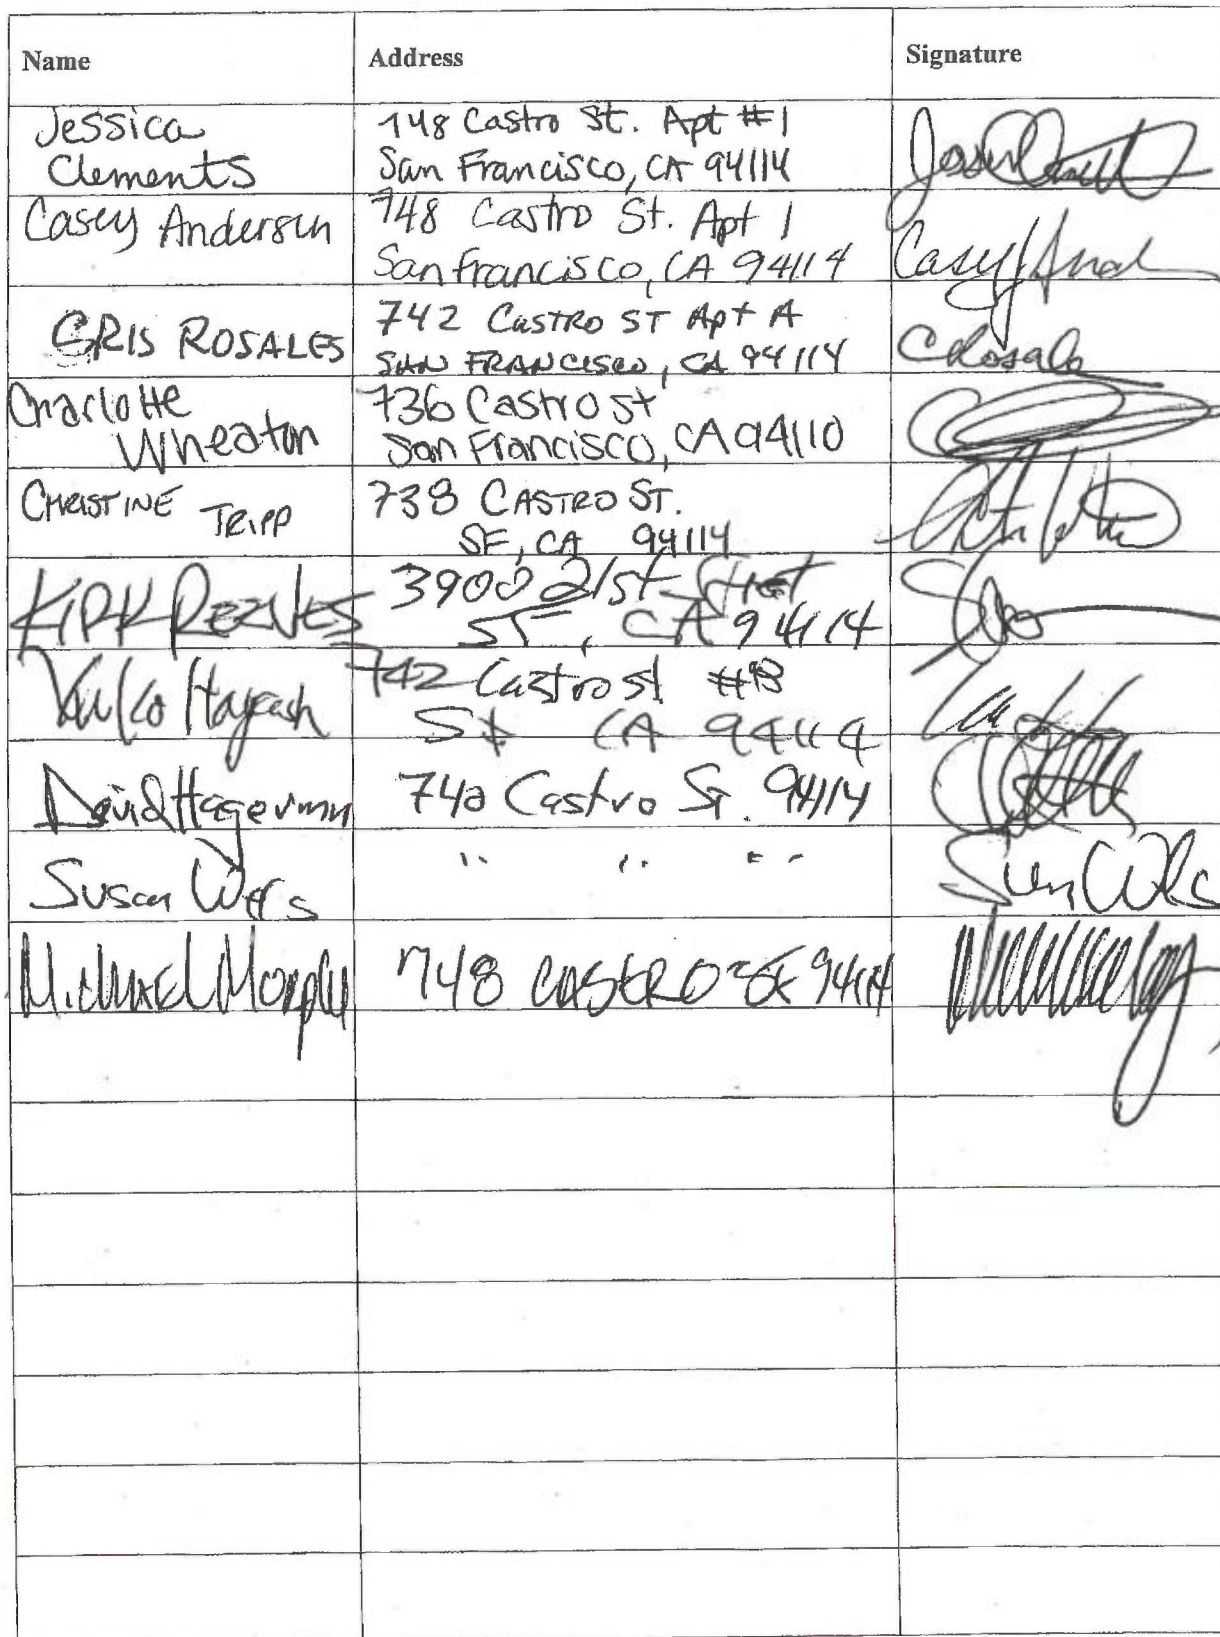 Name Address Signature
Jessica
Clements
748 Castro St. Apt #1
San Francisco, CA 94114
Casey Andersen
748 Castro St. Apt 1
San Francisco, CA 94114
Casey
CRIS ROSALES
742 CASTRO ST Apt A
SAN FRANCISCO, CA 94114
CRosales
Charlotte
Wheaton
736 Castro St
San Francisco, CA 94110
CHRISTINE TRIPP
738 CASTRO ST.
SF, CA 94114
KIRK REEVES
3900 21st Street
SF, CA 94114
742 Castro St
CA 94114
David Hagerman
740 Castro St. 94114
Susan
" " "
MICHAEL
748 CASTRO 94114